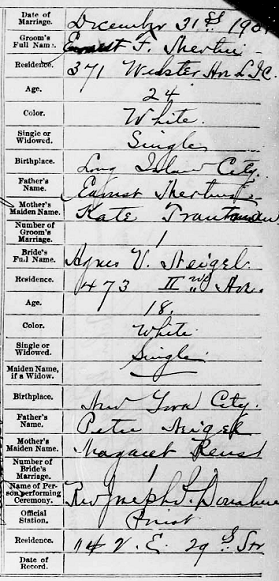 Date of Marriage. December 31st
Groom's Full Name. Earnest F.
Residence. 371 Webster Ave L.I.C.
Age. 24
Color. White.
Single or Widowed. Single
Birthplace. Long Island City.
Father's Name. Earnest
Mother's Maiden Name. Kate
Number of Groom's Marriage. 1
Bride's Full Name. Agnes V. Neigel.
Residence. 473 IInd Ave.
Age. 18.
Color. White.
Single or Widowed. Single
Maiden Name, if a Widow. —
Birthplace. New York City.
Father's Name. Peter Neigel
Mother's Maiden Name. Margaret
Number of Bride's Marriage. 1
Name of Person performing Ceremony. Rev Joseph Donahue
Official Station. Priest
Residence. E. 29 St.
Date of Record.